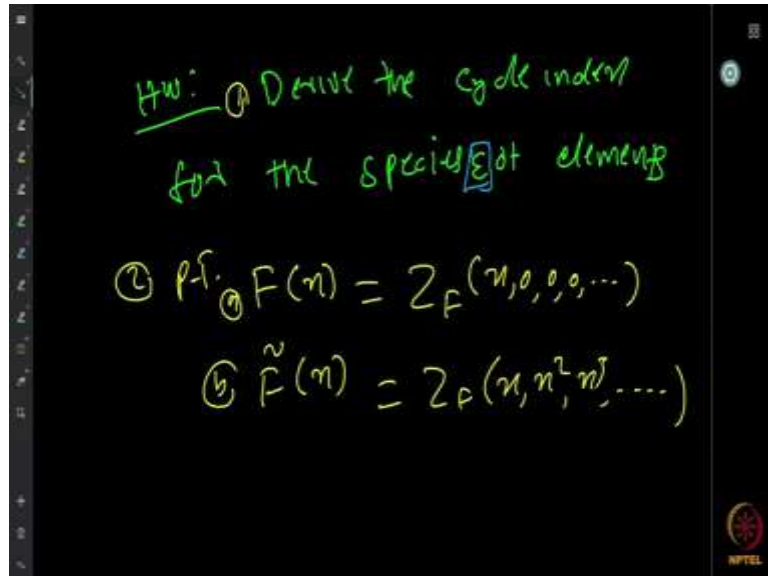 HW: ① Derive the cycle index
for the species ε of elements
② P.T. ⓐ F(x) = Z_F(x,0,0,0,...)
ⓑ F̃(x) = Z_F(x,x²,x³,....)
NPTEL